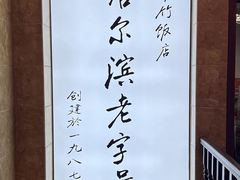 竹饭店
哈尔滨老字号
创建於一九八七